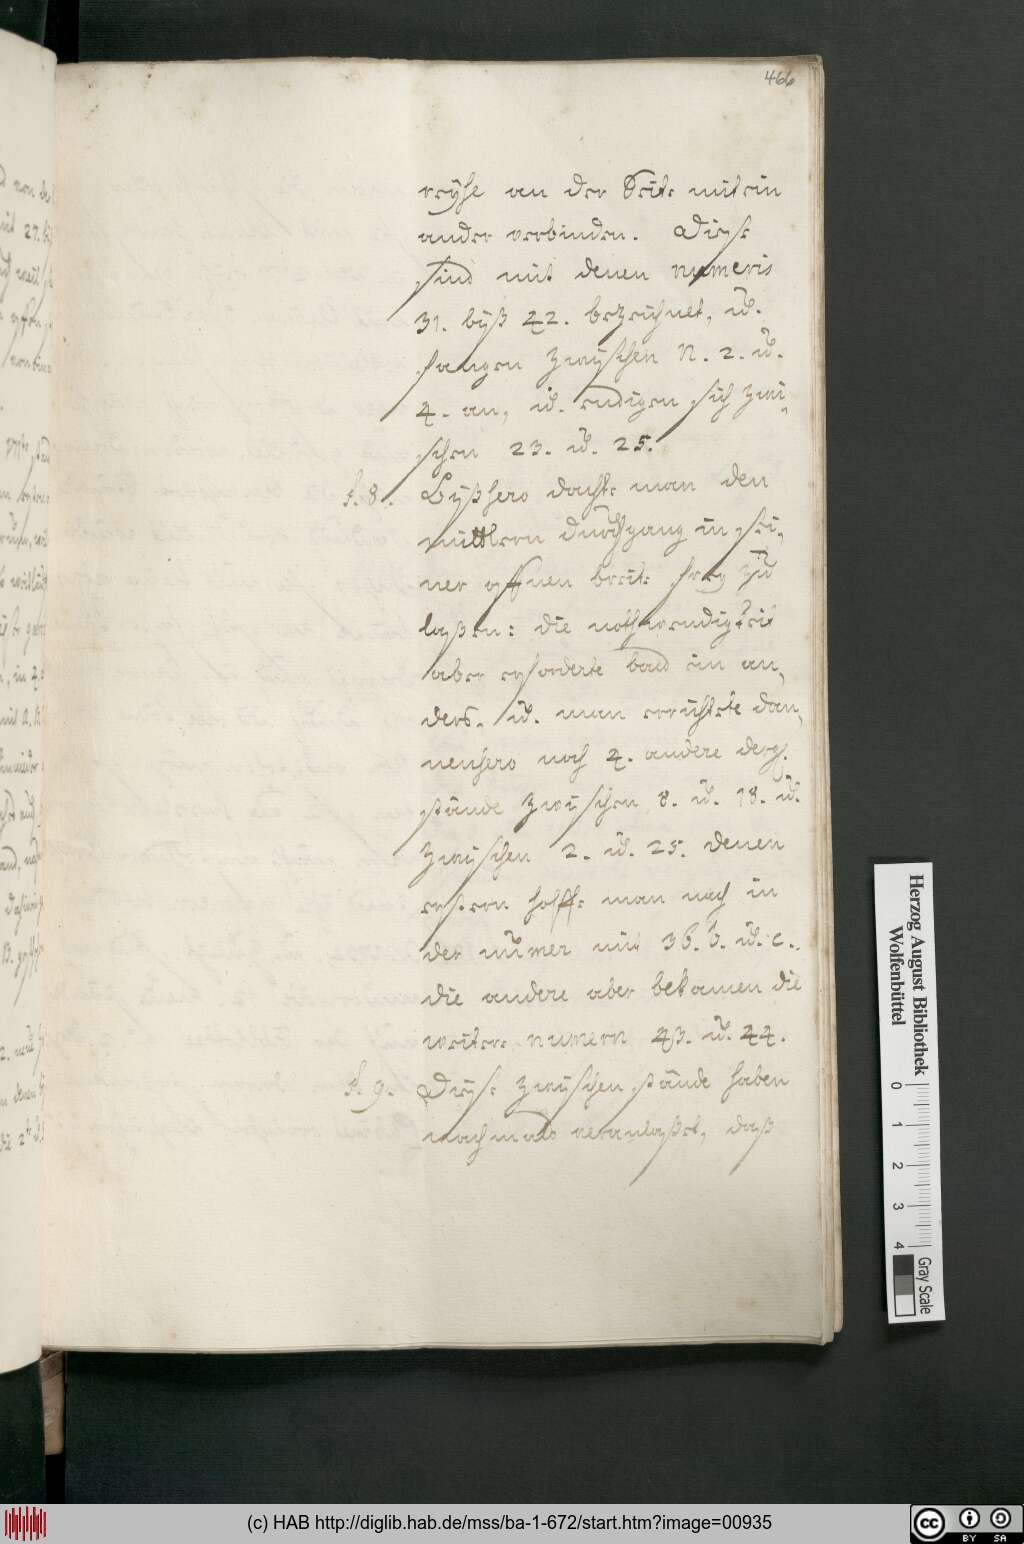 466
reyhe an der Seite mitein
ander verbinden. Diese
sind mit denen numeris
31. biß 42. bezeichnet, ŭ.
fangen zwischen N. 2. ŭ.
4. an, ŭ. endigen sich zwi,
schen 23. ŭ. 25.
§. 8. Bißhero dachte man den
mittlern durchgang in sei,
ner offnen breite frey zŭ
laßen: die nothwendigkeit
aber erforderte bald ein an,
ders, ŭ. man errichtete dan,
nenhero noch 4. andere derg.
stände zwischen 8. ŭ. 18. ŭ.
zwischen 2. ŭ. 25. denen
erstern hoffte man nach in
der nŭmer mit 36. b. ŭ. c.
die andere aber bekamen die
weitere numern 43. ŭ. 44.
§. 9. Diese zwischen stände haben
nachmals veranlaßet, daß
Herzog August Bibliothek
Wolfenbüttel
0 1 2 3 4
Gray Scale
(c) HAB http://diglib.hab.de/mss/ba-1-672/start.htm?image=00935
cc BY SA